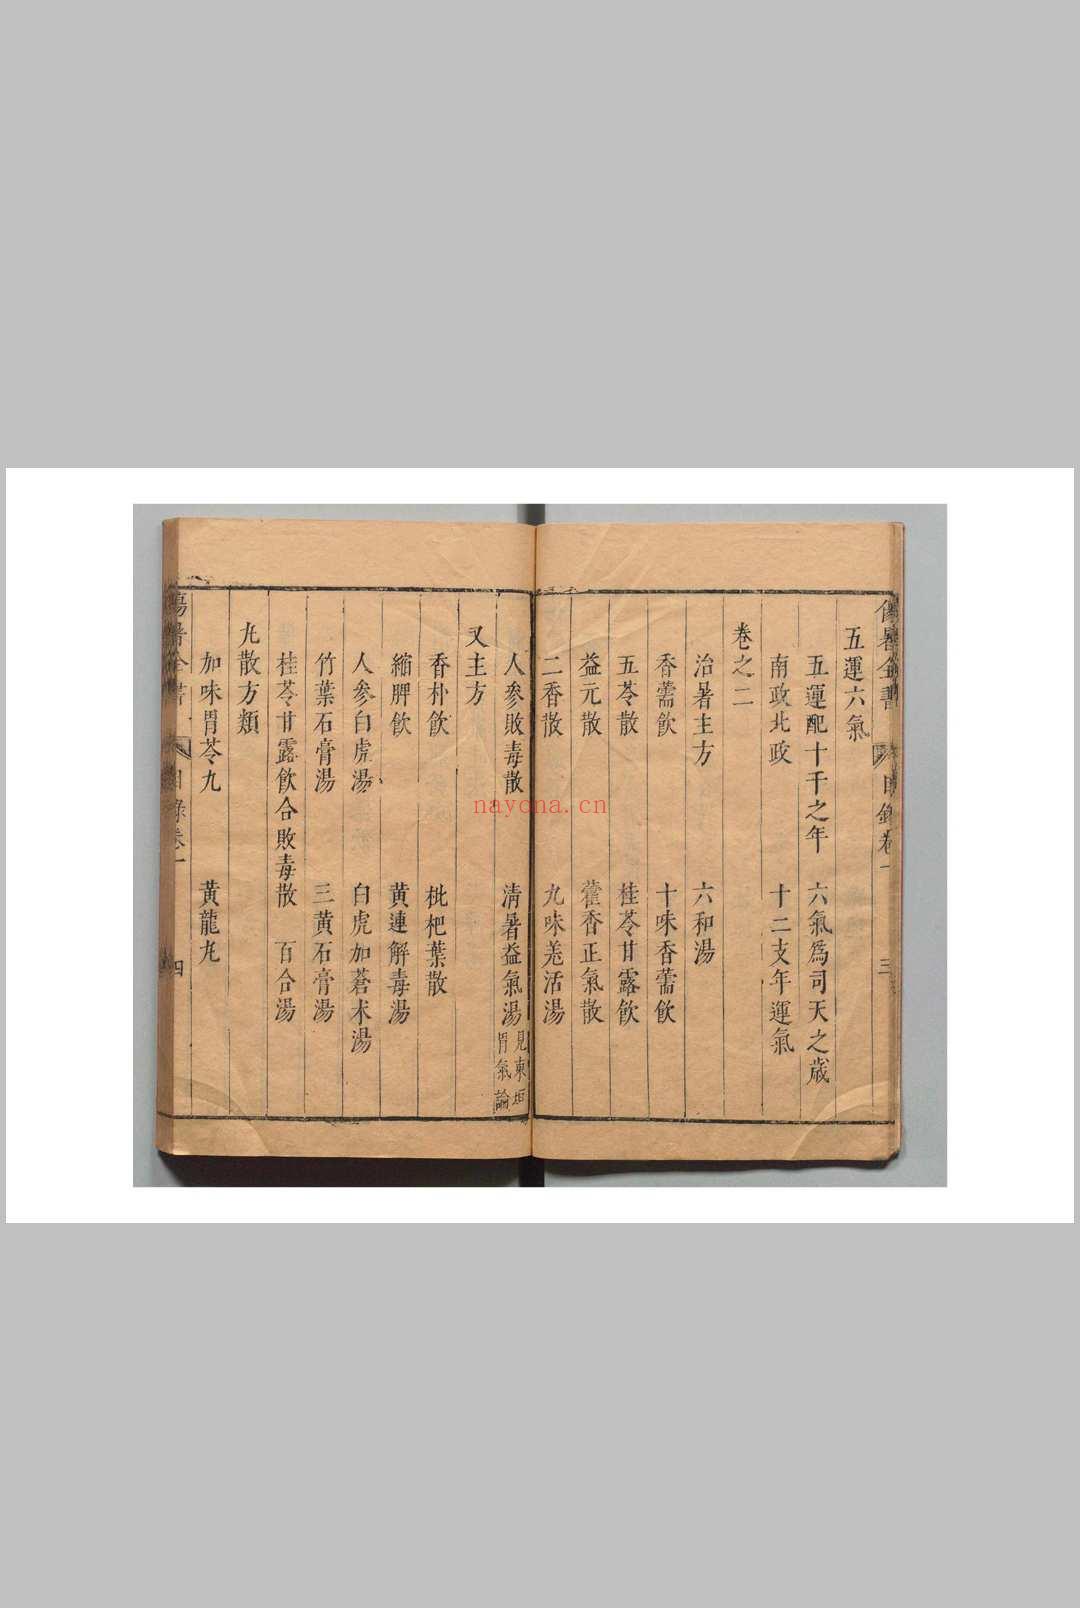 傷暑全書 目錄卷一 三
五運六氣
五運配十干之年 六氣爲司天之歲
南政北政 十二支年運氣
卷之二
治暑主方 六和湯
香薷飲 十味香薷飲
五苓散 桂苓甘露飲
益元散 藿香正氣散
二香散 九味羌活湯
人參敗毒散 清暑益氣湯 見東垣
胃氣論
又主方
香朴飲 枇杷葉散
縮脾飲 黃連解毒湯
人參白虎湯 白虎加蒼朮湯
竹葉石膏湯 三黃石膏湯
桂苓甘露飲合敗毒散 百合湯
丸散方類
加味胃苓丸 黃龍丸
傷暑全書 目錄卷一 四
nayona.cn